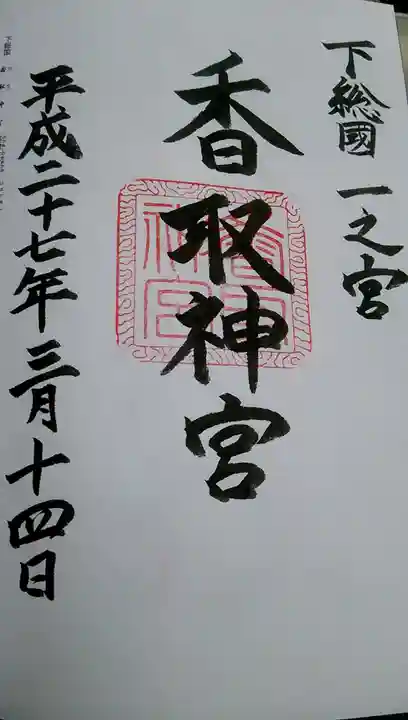 下総國 一之宮
香取神宮
平成二十七年三月十四日